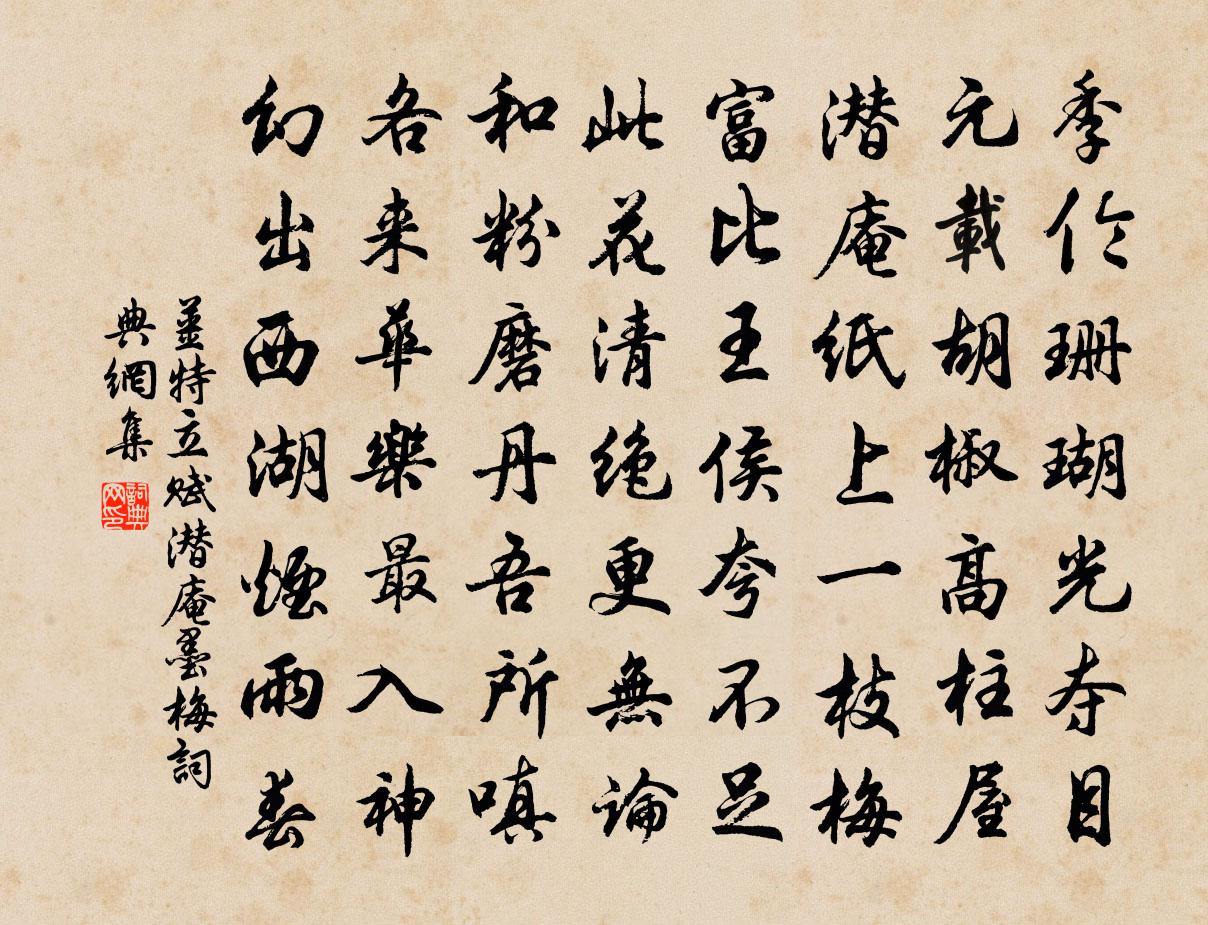 季伦珊瑚光夺目
元載胡椒高柱屋
潜庵纸上一枝梅
富比王侯夸不足
此花清绝更無論
和粉磨丹吾所嗔
各来華樂最入神
幻出西湖煙雨春
薑特立赋潜庵墨梅詞
典網集
詞典网印